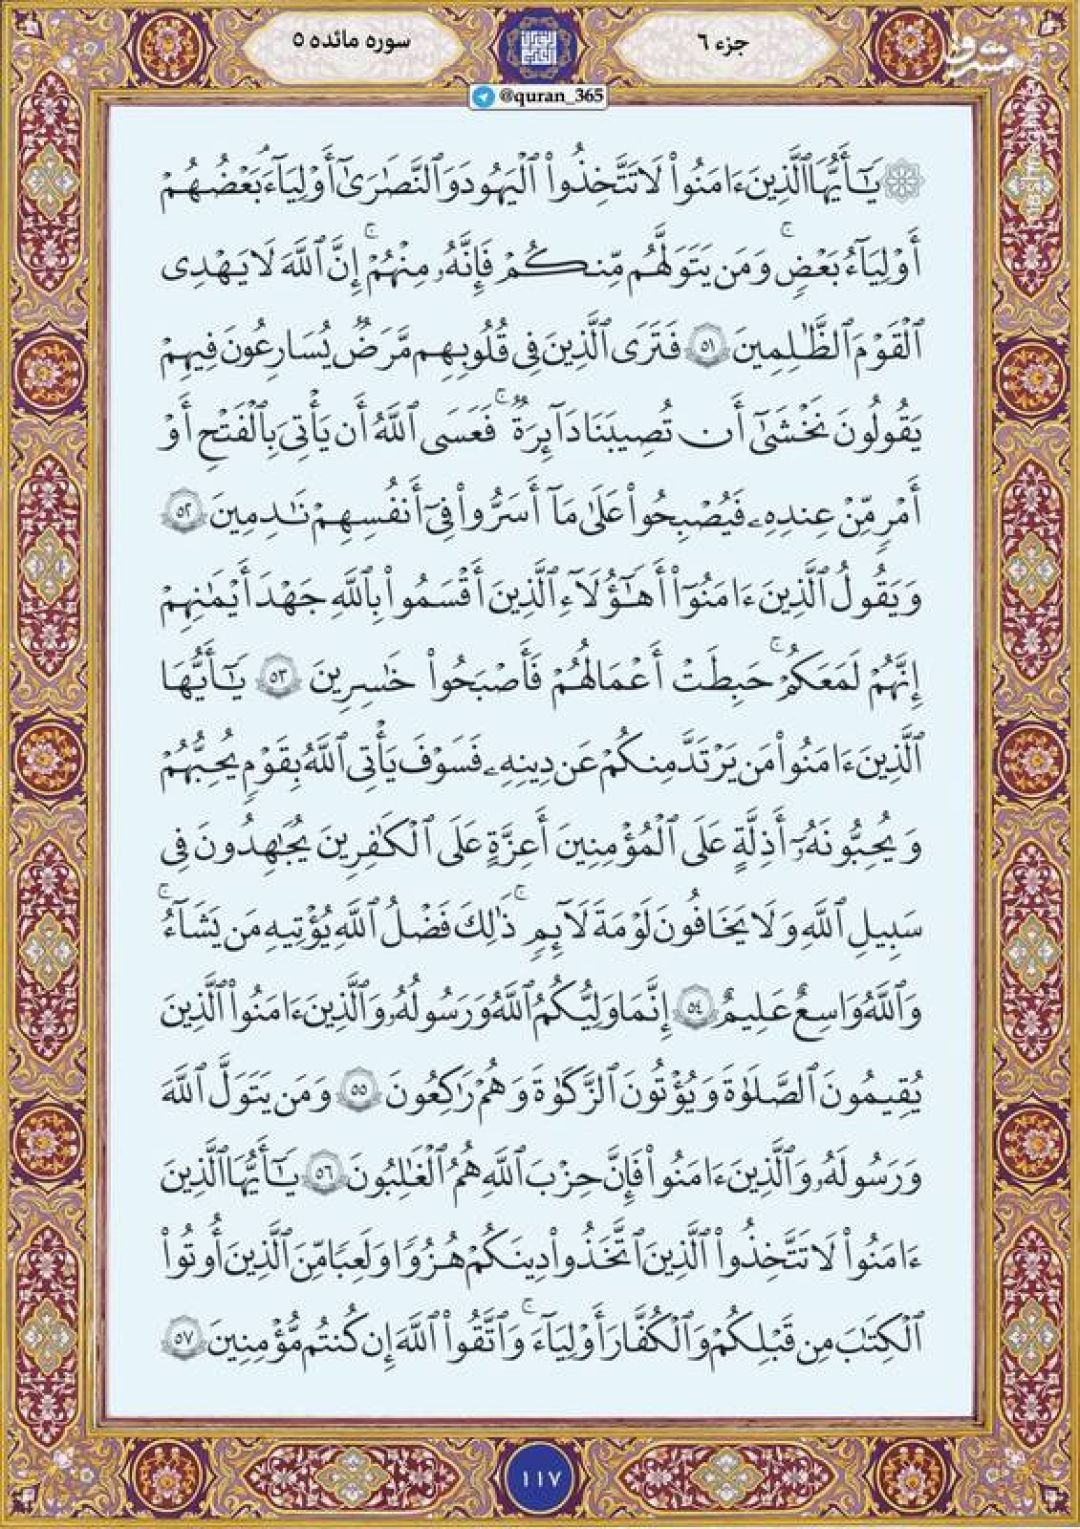 جزء ۶
سوره مائده ۵
مشرق
@quran_365
۞ يَٰٓأَيُّهَا ٱلَّذِينَ ءَامَنُوا۟ لَا تَتَّخِذُوا۟ ٱلْيَهُودَ وَٱلنَّصَٰرَىٰٓ أَوْلِيَآءَ بَعْضُهُمْ
أَوْلِيَآءُ بَعْضٍ ۚ وَمَن يَتَوَلَّهُم مِّنكُمْ فَإِنَّهُۥ مِنْهُمْ ۗ إِنَّ ٱللَّهَ لَا يَهْدِى
ٱلْقَوْمَ ٱلظَّٰلِمِينَ ٥١ فَتَرَى ٱلَّذِينَ فِى قُلُوبِهِم مَّرَضٌ يُسَٰرِعُونَ فِيهِمْ
يَقُولُونَ نَخْشَىٰٓ أَن تُصِيبَنَا دَآئِرَةٌ ۚ فَعَسَى ٱللَّهُ أَن يَأْتِىَ بِٱلْفَتْحِ أَوْ
أَمْرٍ مِّنْ عِندِهِۦ فَيُصْبِحُوا۟ عَلَىٰ مَآ أَسَرُّوا۟ فِىٓ أَنفُسِهِمْ نَٰدِمِينَ ٥٢
وَيَقُولُ ٱلَّذِينَ ءَامَنُوٓا۟ أَهَٰٓؤُلَآءِ ٱلَّذِينَ أَقْسَمُوا۟ بِٱللَّهِ جَهْدَ أَيْمَٰنِهِمْ
إِنَّهُمْ لَمَعَكُمْ ۚ حَبِطَتْ أَعْمَٰلُهُمْ فَأَصْبَحُوا۟ خَٰسِرِينَ ٥٣ يَٰٓأَيُّهَا
ٱلَّذِينَ ءَامَنُوا۟ مَن يَرْتَدَّ مِنكُمْ عَن دِينِهِۦ فَسَوْفَ يَأْتِى ٱللَّهُ بِقَوْمٍ يُحِبُّهُمْ
وَيُحِبُّونَهُۥٓ أَذِلَّةٍ عَلَى ٱلْمُؤْمِنِينَ أَعِزَّةٍ عَلَى ٱلْكَٰفِرِينَ يُجَٰهِدُونَ فِى
سَبِيلِ ٱللَّهِ وَلَا يَخَافُونَ لَوْمَةَ لَآئِمٍ ۚ ذَٰلِكَ فَضْلُ ٱللَّهِ يُؤْتِيهِ مَن يَشَآءُ ۚ
وَٱللَّهُ وَٰسِعٌ عَلِيمٌ ٥٤ إِنَّمَا وَلِيُّكُمُ ٱللَّهُ وَرَسُولُهُۥ وَٱلَّذِينَ ءَامَنُوا۟ ٱلَّذِينَ
يُقِيمُونَ ٱلصَّلَوٰةَ وَيُؤْتُونَ ٱلزَّكَوٰةَ وَهُمْ رَٰكِعُونَ ٥٥ وَمَن يَتَوَلَّ ٱللَّهَ
وَرَسُولَهُۥ وَٱلَّذِينَ ءَامَنُوا۟ فَإِنَّ حِزْبَ ٱللَّهِ هُمُ ٱلْغَٰلِبُونَ ٥٦ يَٰٓأَيُّهَا ٱلَّذِينَ
ءَامَنُوا۟ لَا تَتَّخِذُوا۟ ٱلَّذِينَ ٱتَّخَذُوا۟ دِينَكُمْ هُزُوًا وَلَعِبًا مِّنَ ٱلَّذِينَ أُوتُوا۟
ٱلْكِتَٰبَ مِن قَبْلِكُمْ وَٱلْكُفَّارَ أَوْلِيَآءَ ۚ وَٱتَّقُوا۟ ٱللَّهَ إِن كُنتُم مُّؤْمِنِينَ ٥٧
١١٧